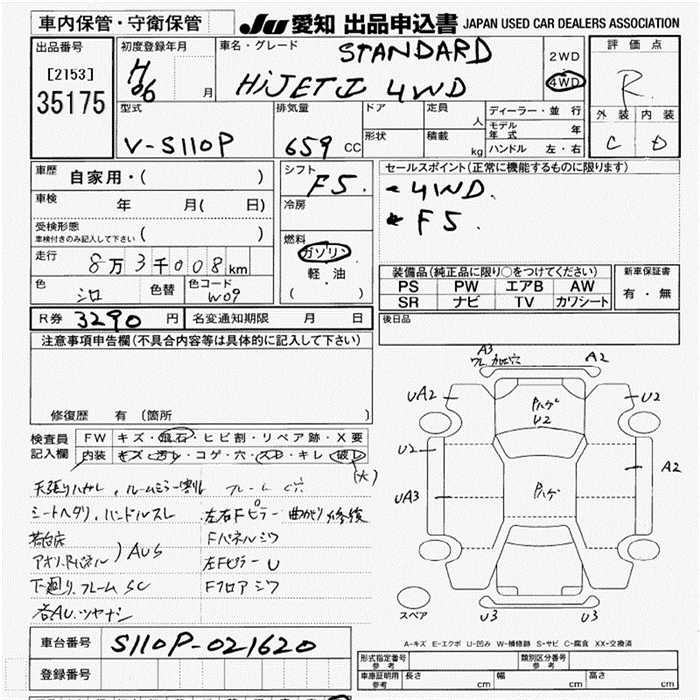 車内保管・守衛保管
JU 愛知 出品申込書 JAPAN USED CAR DEALERS ASSOCIATION
出品番号
[2153]
35175
初度登録年月
H
06
月
車名・グレード
STANDARD
HiJET 4WD
2WD
4WD
評価点
R
外装 内装
C D
型式
V-S110P
排気量
659 CC
ドア
形状
定員
人
積載
kg
ディーラー・並行
モデル年式 年
ハンドル 左・右
車歴
自家用・( )
車検
年 月( 日)
受検形態
車検付きのみ記入して下さい ( )
走行
8万3千008km
色
シロ
色替
色コード
W09
シフト
F5.
冷房
燃料
ガソリン
軽油
( )
セールスポイント(正常に機能するものに限ります)
4WD.
F5.
装備品(純正品に限り○をつけてください)
PS PW エアB AW
SR ナビ TV カワシート
新車保証書
有・無
R券 3290 円
名変通知期限 月 日
後日品
注意事項申告欄(不具合内容等は具体的に記入して下さい)
修復歴 有(箇所 )
検査員
記入欄
FW キズ・飛石・ヒビ割・リペア跡・X要
内装 キズ・汚レ・コゲ・穴・スレ・キレ・破レ
(大)
天張りハガレ,ルームミラー割れ
フレーム 穴
シートヘタリ,ハンドルスレ
左右Fピラー 曲がり修復
荷台床
アオリ,Rパネル)AUS
Fパネルシワ
左FピラーU
下廻り,フレームSC
Fフロアシワ
各AU.ツヤナシ
A3
ワレ 加工穴
A2
UA2
U2
PハゲU2
U2
A2
UA3
Pハゲ
スペア
U3
U3
A-キズ E-エクボ U-凹み W-補修跡 S-サビ C-腐食 XX-交換済
車台番号
S110P-021620
登録番号
形式指定番号
参考
類別区分番号
参考
車庫証明用
参考
長さ cm
幅 cm
高さ cm